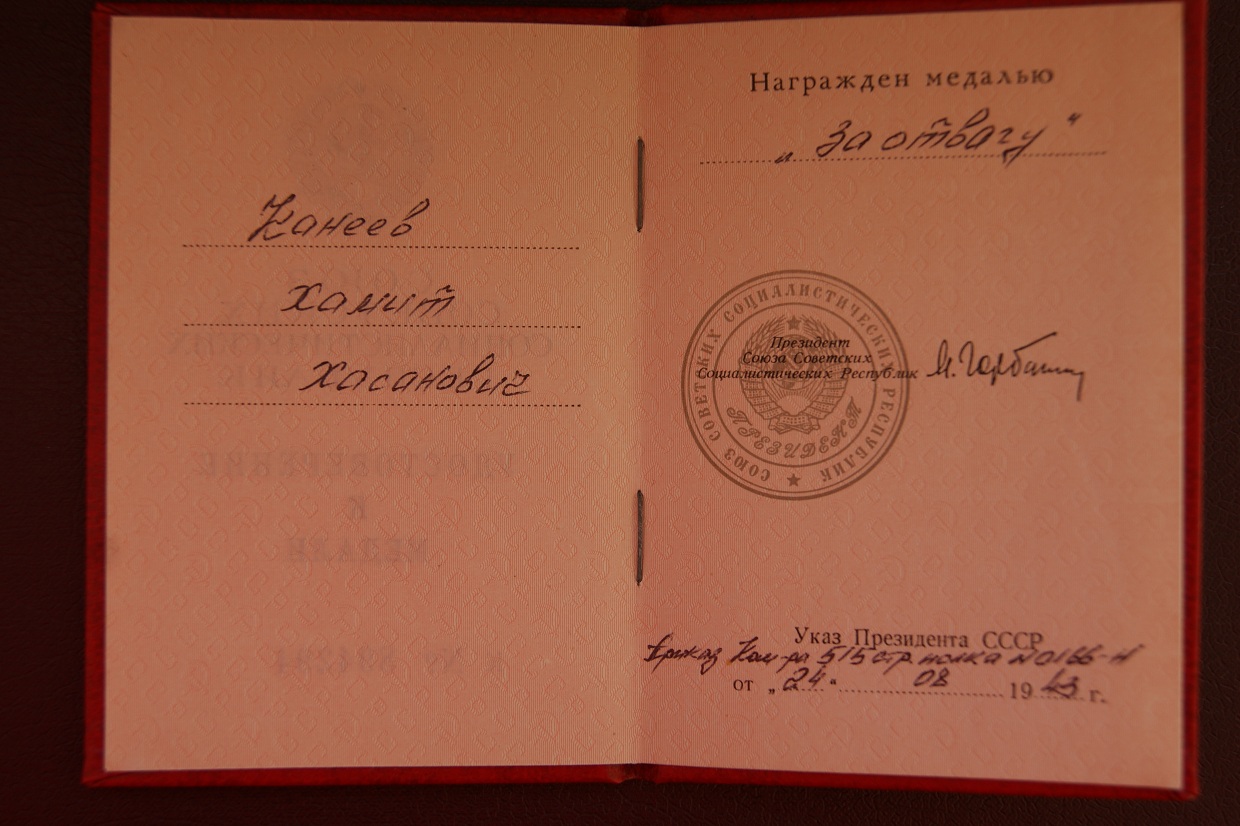 Канеев
Хамит
Хасанович
Награжден медалью
„За отвагу"
СОЮЗ СОВЕТСКИХ СОЦИАЛИСТИЧЕСКИХ РЕСПУБЛИК
ПРЕЗИДЕНТ
Президент
Союза Советских
Социалистических Республик
М. Горбачев
Указ Президента СССР
Приказ Ком-ра 515 стр. полка N 0166-Н
от „24" 08 1943 г.